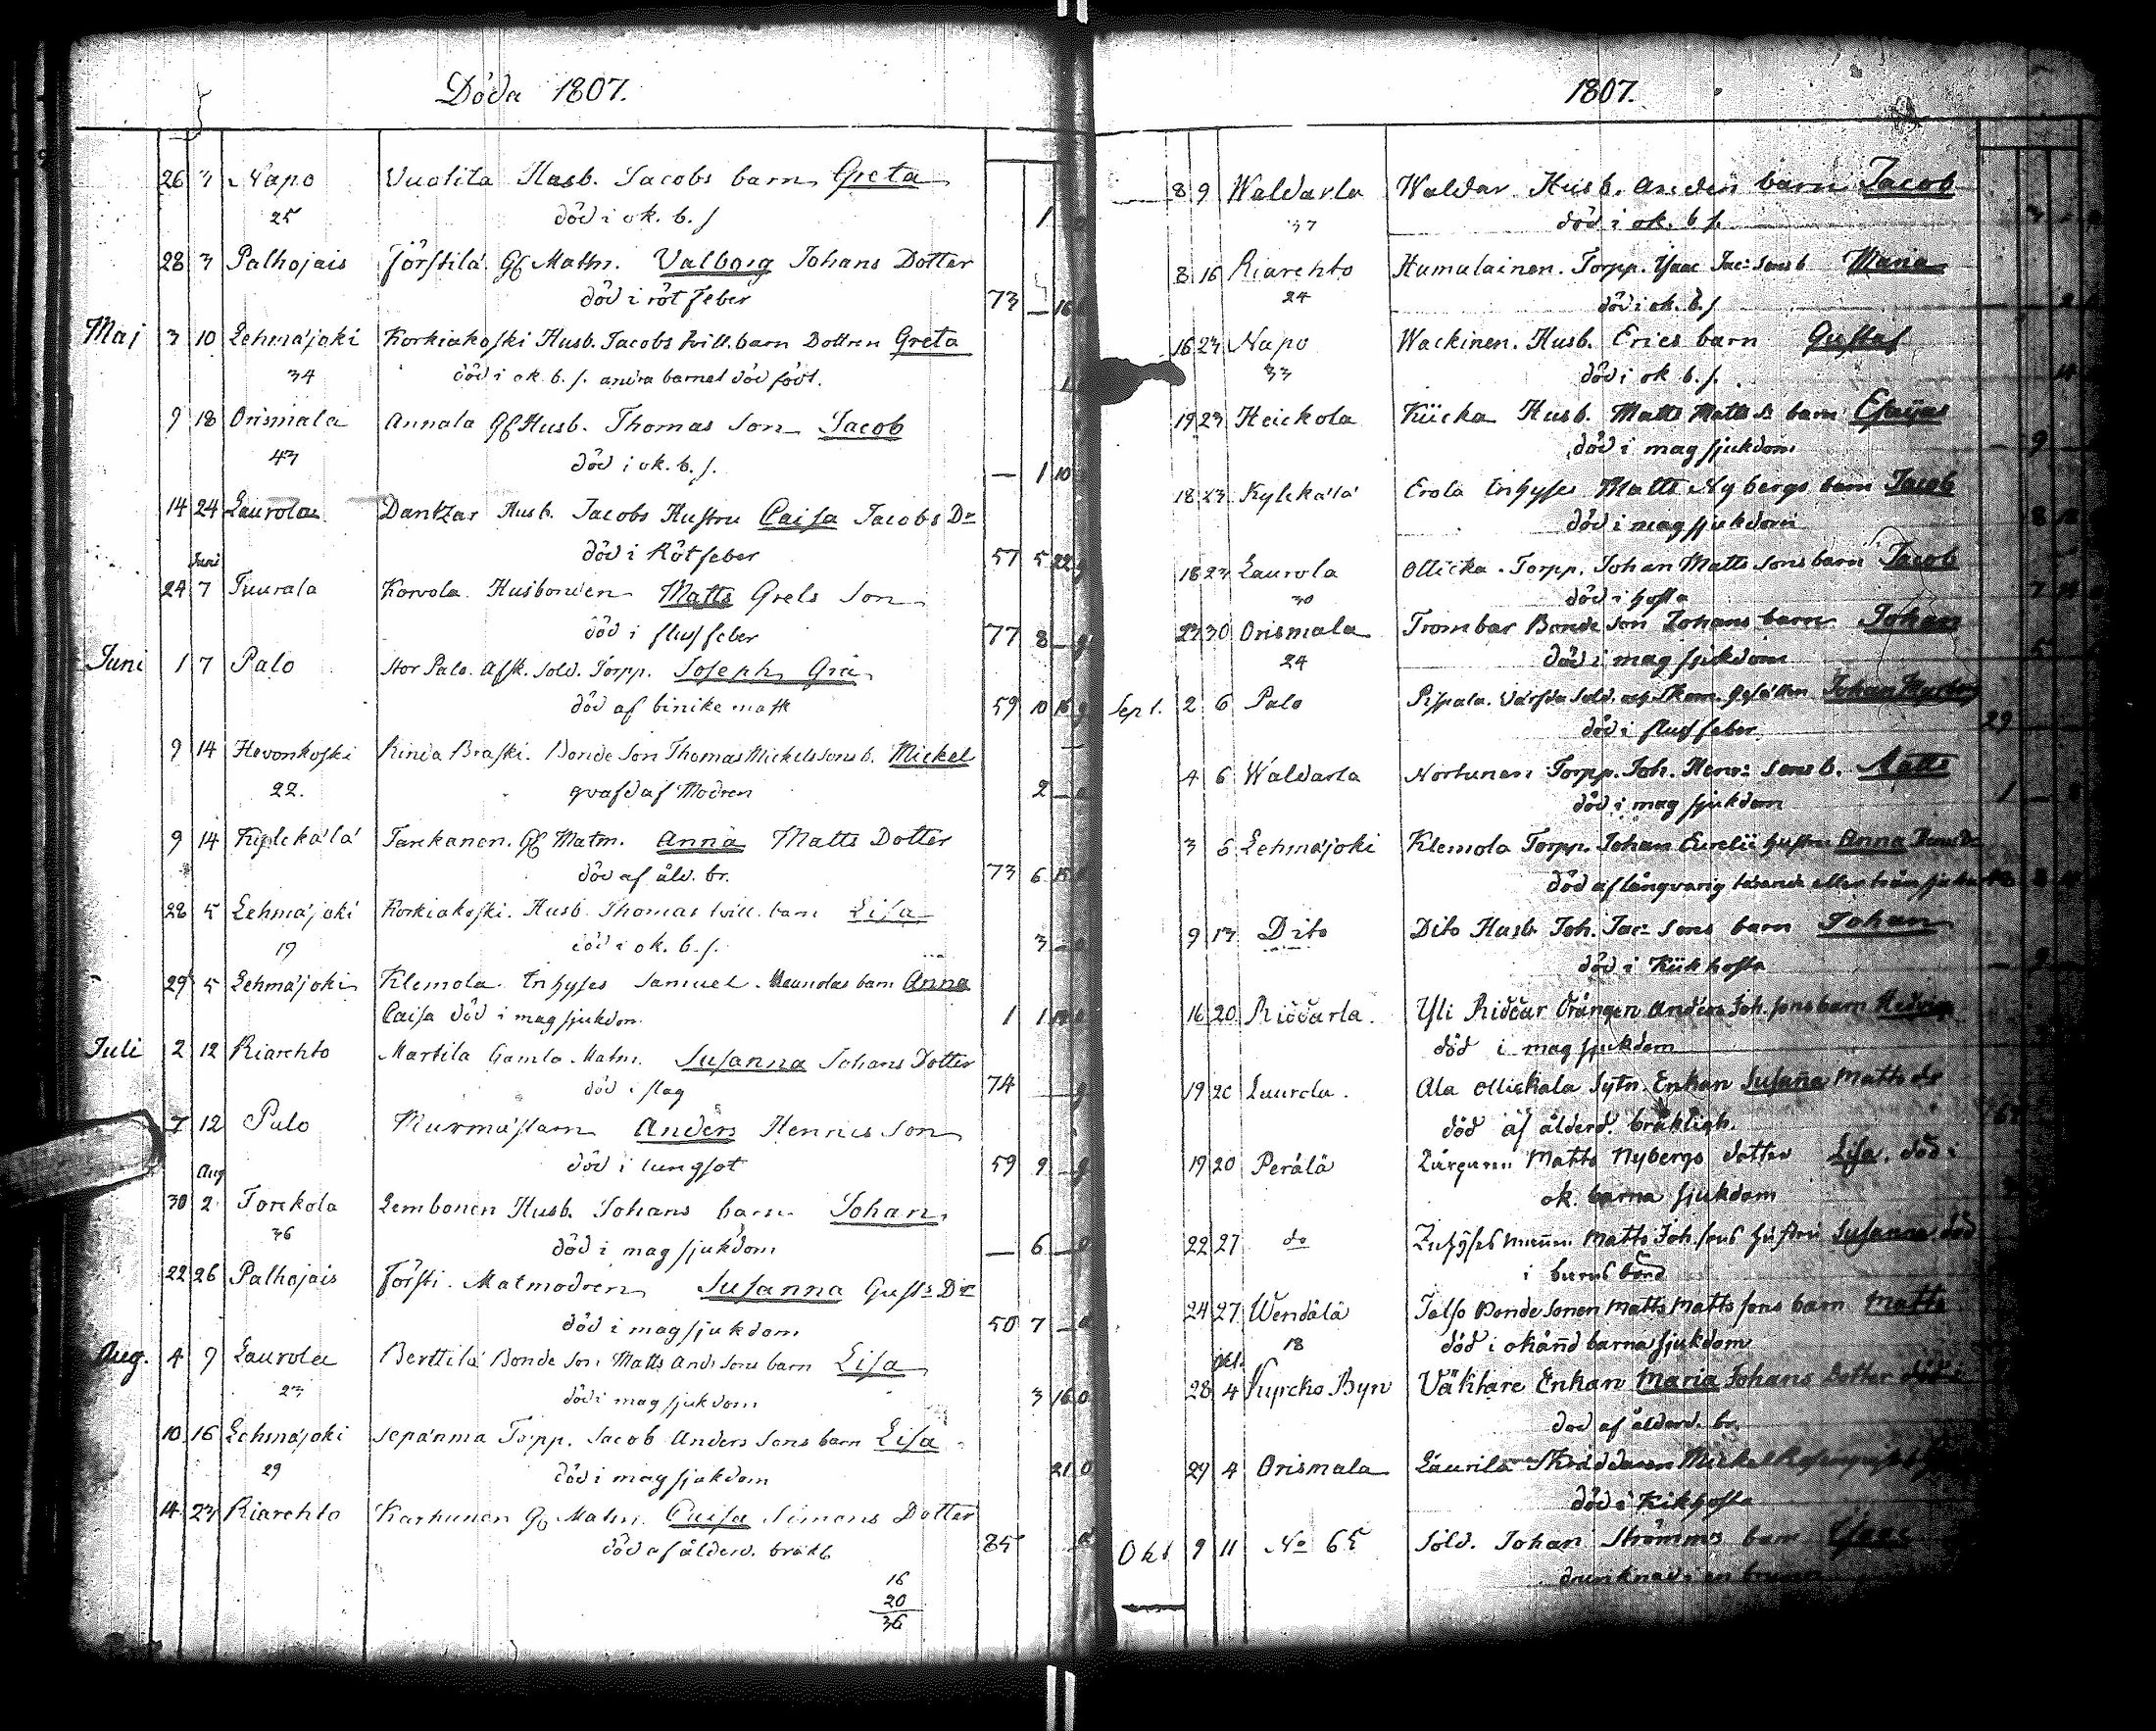 Döda 1807.
26 3 Napo Vuolila Husb. Jacobs barn Greta
25 död i ok. b. s 1
28 3 Palhojais Förstilä. Gf Matm. Valborg Johans Dotter
död i röt feber 73 — 16
Maj 3 10 Lehmäjoki Korkiakoski Husb. Jacobs tvill. barn Dottren Greta
34 död i ok. b. s. andra barnet död födt. 1
9 18 Orismala Annala Gf Husb. Thomas Son Jacob
43 död i ok. b. s. — 1 10
14 24 Laurola Dantzar Husb. Jacobs Hustru Caisa Jacobs Dr
Juni död i Rötfeber 57 5 22
24 7 Tuurala Korvola Husbonden Matts Grels Son
död i fluss feber 77 8 —
Juni 1 7 Palo Stor Palo. Afsk. Sold. Torpp. Joseph Grå
död af binike mask 59 10 16
9 14 Hevonkoski Kinda Braski. Bonde Son Thomas Mickelssons b. Mickel
22. qvafd af Modren 2 —
9 14 Kylckälä Tarkanen. Gf Matm. Anna Matts Dotter
död af åld. br. 73 6 15
28 5 Lehmäjoki Korkiakoski. Husb. Thomas tvill. barn Lisa
19 död i ok. b. s. 3 —
29 5 Lehmäjoki Klemola Inhyses Samuel barn Anna
Caisa död i mag sjukdom. 1 1
Juli 2 12 Riarehto Martila Gamla Matm. Susanna Johans Dotter
död i slag 74 —
7 12 Palo Murmästarn Anders Hennics Son
Aug död i lungsot 59 9 —
30 2 Torckola Lembonen Husb. Johans barn Johan
36 död i mag sjukdom — 6 —
22 26 Palhojais Försti. Matmodren Susanna Gusts Dr
död i mag sjukdom 50 7 —
Aug. 4 9 Laurola Berttilä Bonde Son Matts And: Sons barn Lisa
23 död i mag sjukdom 3 16
10 16 Lehmäjoki Sepänma Torpp. Jacob Anders Sons barn Lisa
29 död i mag sjukdom 21
14 23 Riarehto Karhunen Gf Matm. Caisa Simons Dotter
död af ålderd. bräkl. 85
16
20
36
1807.
8 9 Waldarla Waldar Husb. barn Jacob
37 död i ok. b s.
8 16 Riarehto Humalainen. Torpp. Isaac Jac: Sons b Maria
24 död i ok. b. s
16 23 Napo Wackinen. Husb. Erics barn Gustaf
33 död i ok b. s.
19 23 Heickola Kiicka Husb. Matts Matts S barn Esaijas
död i mag sjukdom — 9 —
18 23 Kylckälä Erola Inhyses Matts Nybergs barn Jacob
död i mag sjukdom 8
18 23 Laurola Ollicka Torpp. Johan Matts Sons barn Jacob
30 död i hosta 7
23 30 Orismala Trombar Bonde Son Johans barn Johan
24 död i mag sjukdom 5
Sept. 2 6 Palo Pispala. Värfda Sold. och Skom. Gesällen Johan
död i fluss feber 29
4 6 Waldarla Nortunen Torpp. Joh. Henr: Sons b. Matts
död i mag sjukdom 1 —
3 6 Lehmäjoki Klemola Torpp. Johan hustru Anna
död af långvarig tärande eller trånsjuka
9 13 Dito Dito Husb. Joh. Jac: Sons barn Johan
död i Kiikhosta — 9 —
16 20 Riddarla. Yli Riddar Drängen Anders Joh. sons barn Hedvig
död i mag sjukdom
19 20 Laurola. Ala Ollickala Sytn. Enkan Susanna Matts dr
död af ålderd. bräkligh.
19 20 Perälä Matts Nybergs dotter Lisa. död i
ok. barna sjukdom
22 27 do Inhyses Matts Joh. sons hustru Susanna död
i barns börd
24 27 Wendälä Talso Bonde Sonen Matts Matts sons barn Matts
18 död i okänd barna sjukdom
Okt.
28 4 Byn Väktare Enkan Maria Johans Dotter
död af ålderd. br.
29 4 Orismala Laurila Skräddaren Mickel
död i Kikhosta
Okt 9 11 No 65 Sold. Johan Strömms barn
drunknad i en brunn